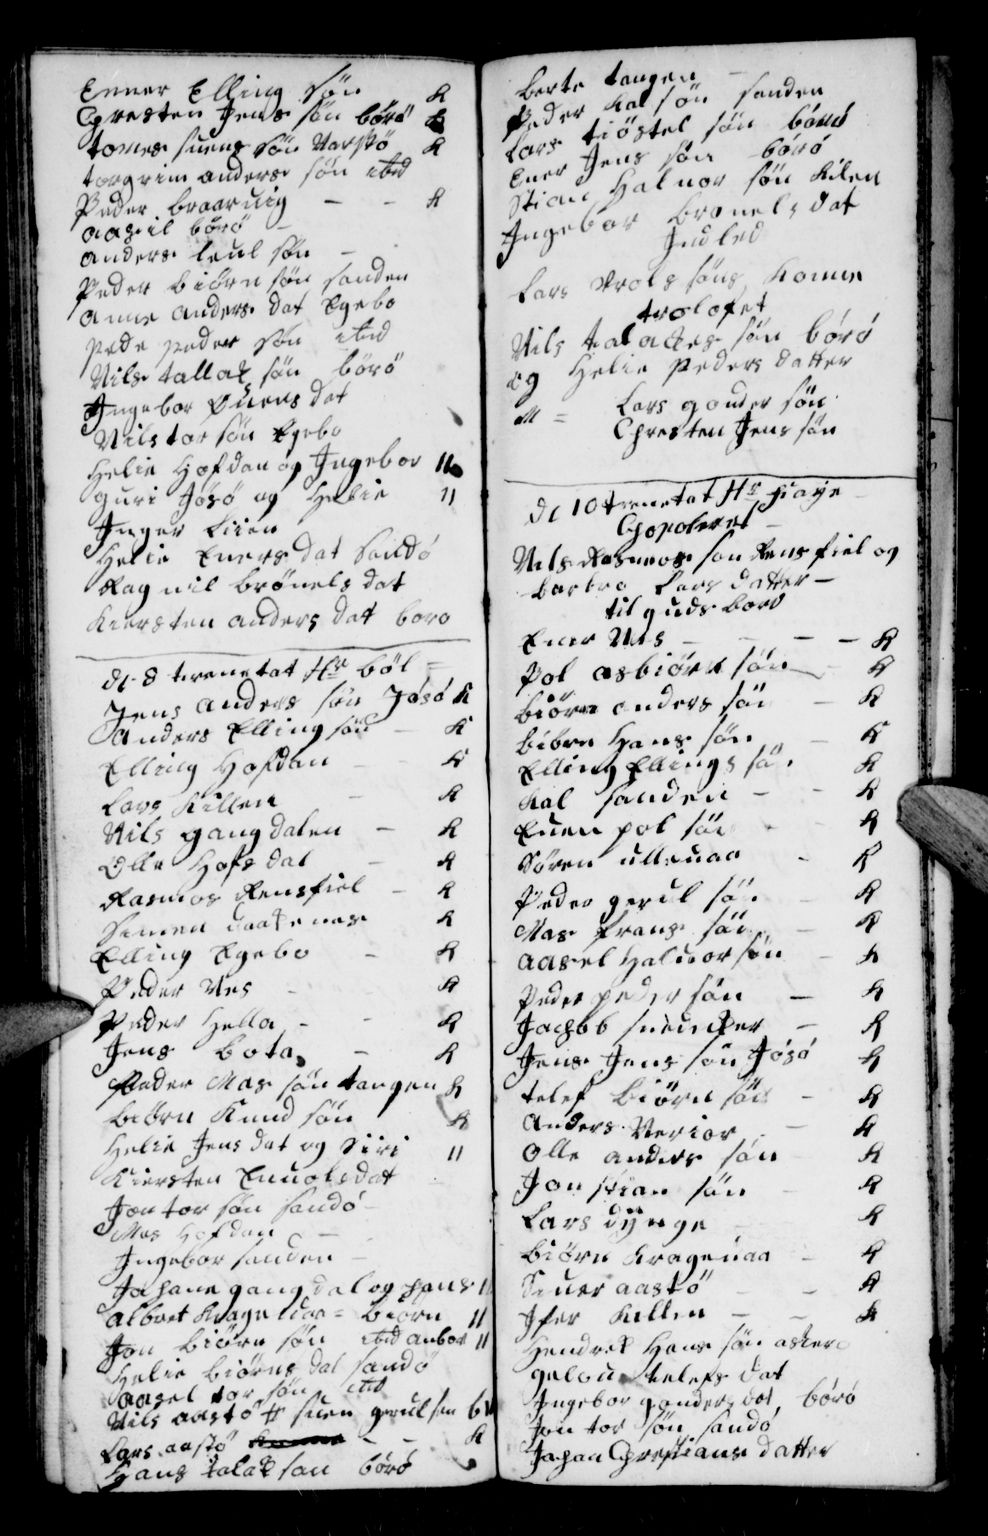 Enner Elling søn K
Chresten Jens søn börö K
tomes suens søn Varskö K
torgrim anders søn ibid
Peder braaruig - - K
aasil börö -
anders leul søn -
Peder biörn søn sanden
anne anders dat Egebo
pede peder søn ibid
Nils tallak søn börö
Ingebor Euens dat
Nils tor søn Egebo
Helie Hofdan og Ingebor 11
guri Jösö og Helie 11
Inger Liien
Helie Eners dat Sandö
Ragnil brönels dat
Kiersten anders dat boro
dc 8 trenetat Hr böl =
Jens anders søn Jösö K
Anders Elling søn - K
Elling Hofdan - - K
Lars Killen - K
Nils gangdalen - K
Olle Hofs dal - K
Rasmos Rensfiel - K
Simen K
Elling Egebo - K
Peder Nes - K
Peder Hella - - K
Jens bota - K
Peder Mas søn tangen K
biörn Knud søn K
Helie Jens dat og Siri 11
Kiersten Enuols dat
Jon tor søn sandö -
Mas Hofdan -
Ingebor sanden -
Johane gangdal og hans 11
albret Krage = biörn 11
Jon biörn søn ibid anbor 11
Helie biörns dat sandö
aasel tor søn ibid
Nils aastö H suen gerul søn 6
Lars aastö - - K
Hans talak søn börö
berte tangen -
Peder Kal søn sanden
Lars tiöstel søn börö
Ener Jens søn börö
Stian Halvor søn Kilen
Ingebor bronels dat
Indled
Lars trols søns Konne
trolofet
Nils talakes søn börö
og Helie Peders datter
M = Lars gonder søn
Chresten Jens søn
dc 10 trenetat Hr hiaye
Chopoleret -
Nils Rasmos søn Rensfiel og
barbro Lars datter -
til guds bord
Ener Nes - - - K
Pol asbiörn søn K
biörn anders søn - K
biörn Hans søn - K
Elling Ellings søn K
Kal sanden - - K
Euen pol søn - K
Sören ulleuaa - K
Peder gerul søn - K
Mas frans søn - K
aasel Haluor søn - K
Peder peder søn - K
Jachob sneicker - K
Jens Jens søn Jösö K
telef biörn søn - K
Anders Verior - K
Olle anders søn K
Jon stian søn - K
Lars dynge - K
biörn Krageuaa - K
Siuer aastö - - K
Ifer Killen - - K
Hendrik Hans søn askerö
gelou telefs dat
Ingebor gonders dat, börö
Jon tor søn sandö
Johan Chrestians datter